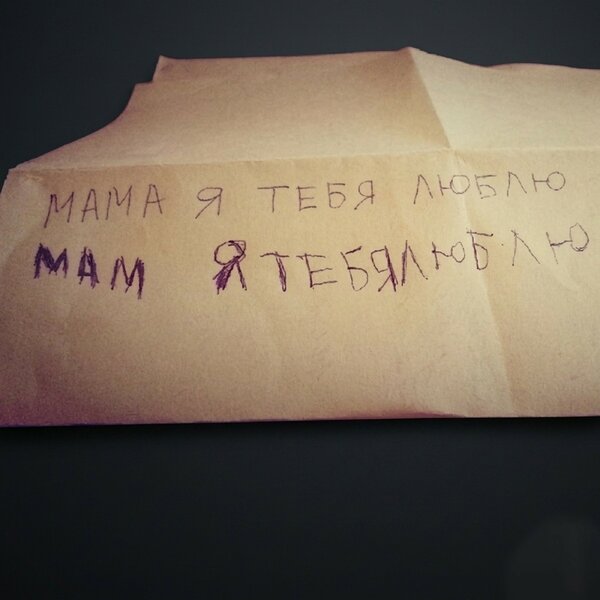 МАМА Я ТЕБЯ ЛЮБЛЮ
МАМ Я ТЕБЯЛЮБЛЮ